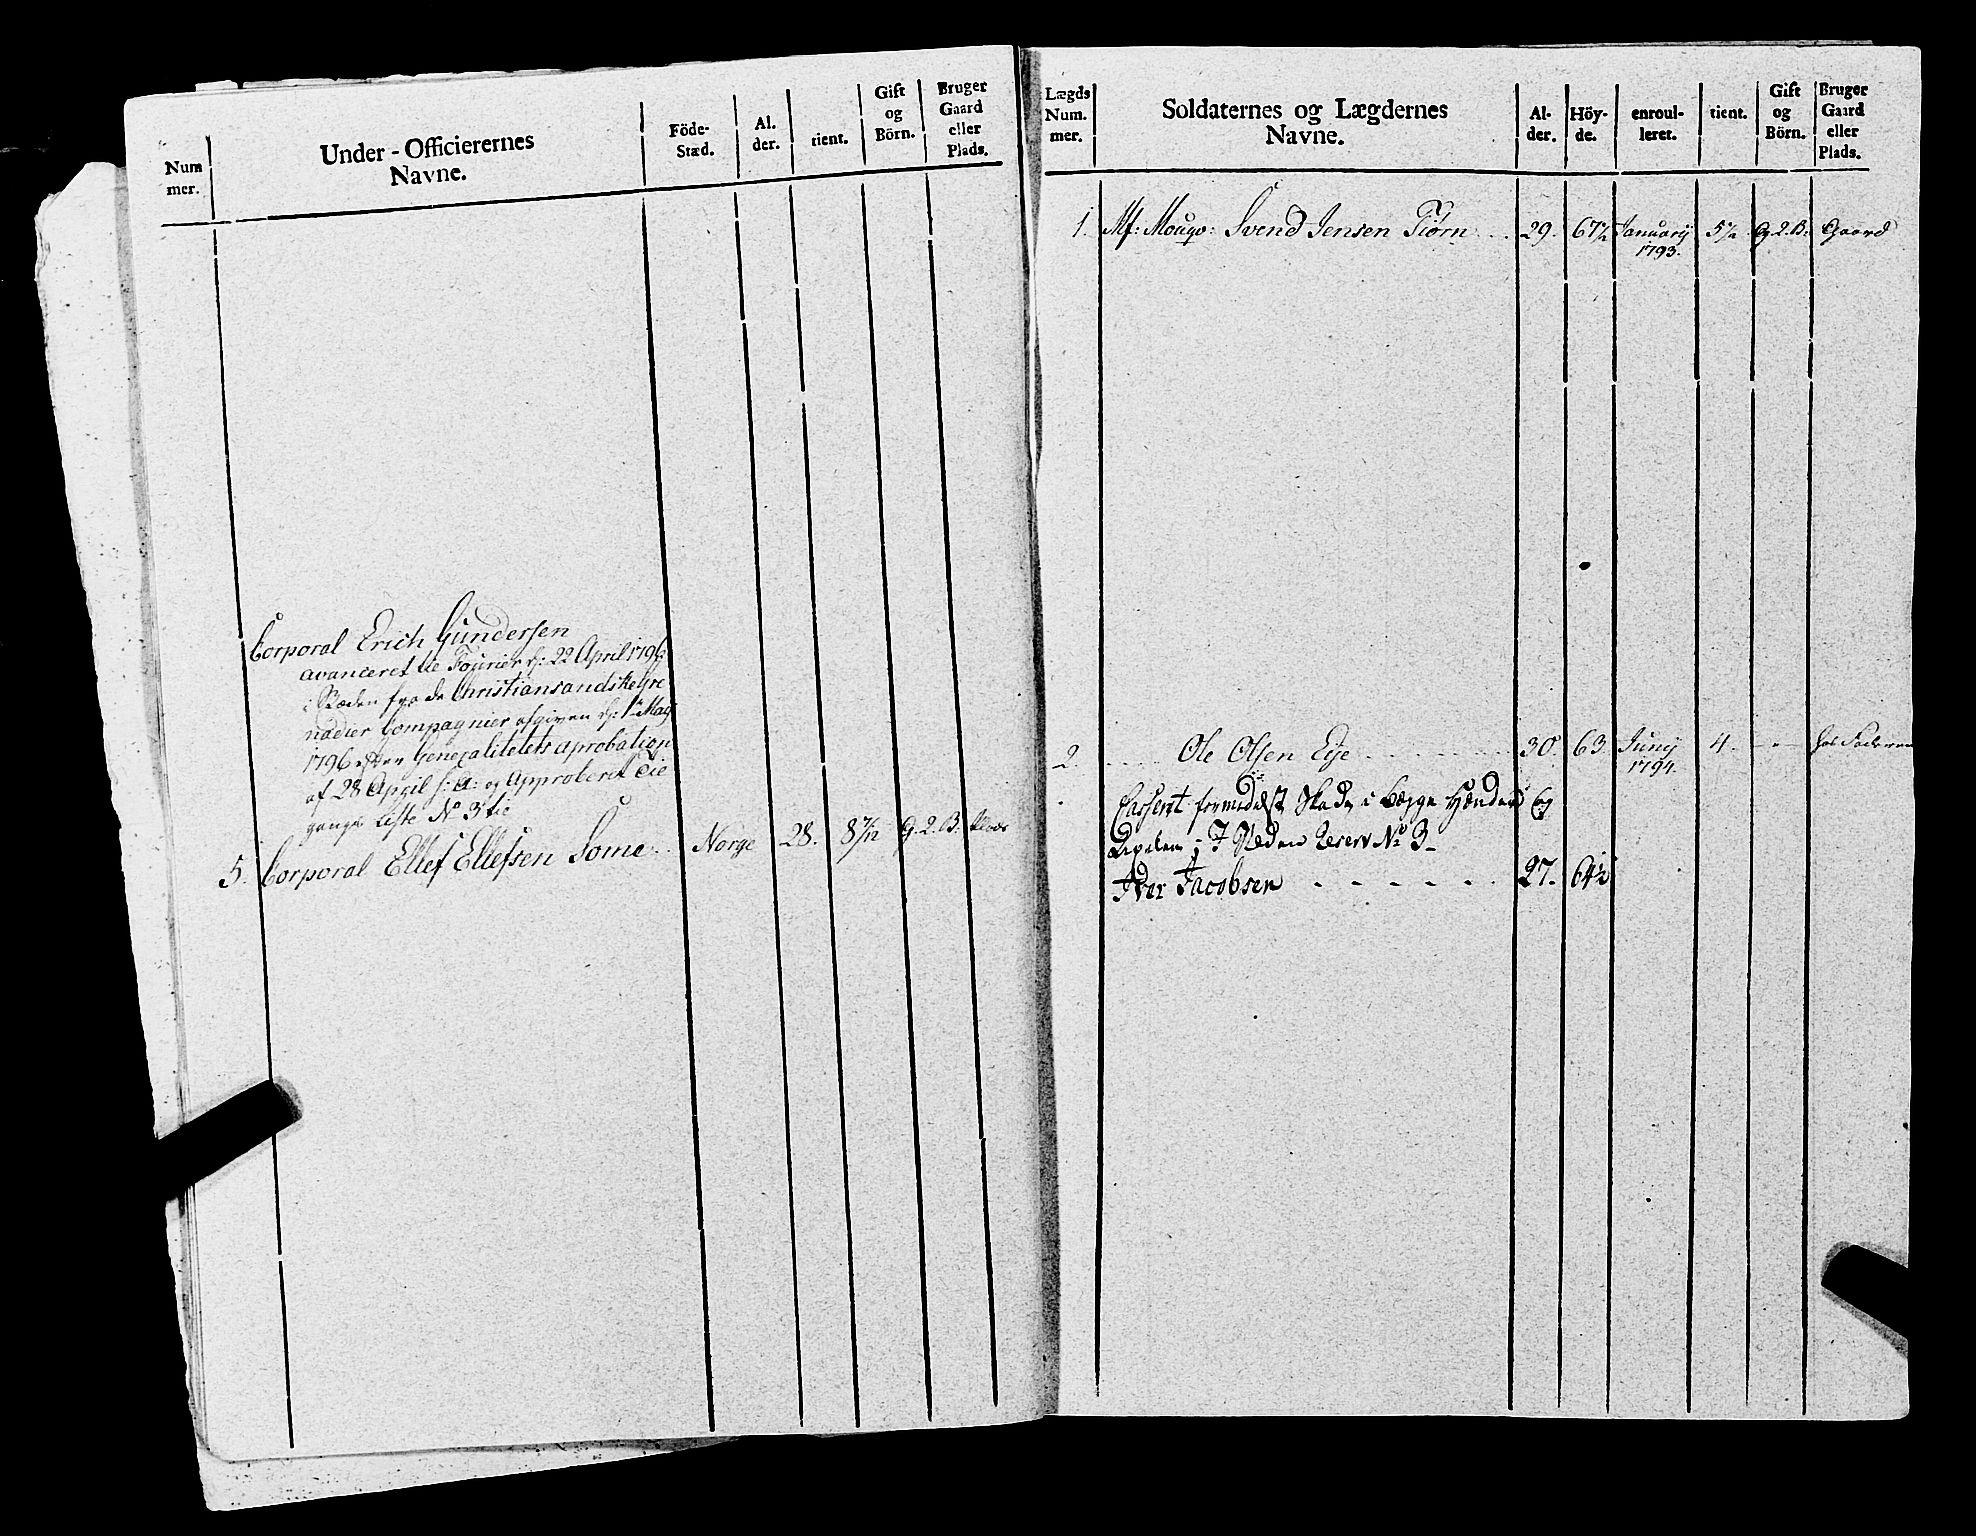 Num
mer.
Under-Officierernes
Navne.
Föde-
Stæd.
Al.
der.
tient.
Gift
og
Börn.
Bruger
Gaard
eller
Plads.
Corporal Erich Gundersen
avanceret til Fourier d: 22 April 1796
i Stæden fra de Christiansandske Gre
nadier Compagnier afgiven d: 1te Maij
1796 efter Generalitetets aprobation
af 28 April s: A: og Approberet
gangs Liste No 3 tie
5. Corporal Ellef Ellefsen Some Norge 28. 8 7/12 G. 2. B.
Lægds
Num.
mer.
Soldaternes og Lægdernes
Navne.
Al-
der.
Höy-
de.
enroul-
leret.
tient.
Gift
og
Börn.
Bruger
Gaard
eller
Plads.
1. Svend Jensen Tiørn 29. 67½ January 5½ G 2. B. Gaard
1793.
2 Ole Olsen Eije 30. 63 Junij 4. - " - hos Faderen
1794.
Cassert formedelst Skade i begge Hænder og
i Steden Reserv No 3
Iver Jacobsen 27. 64½